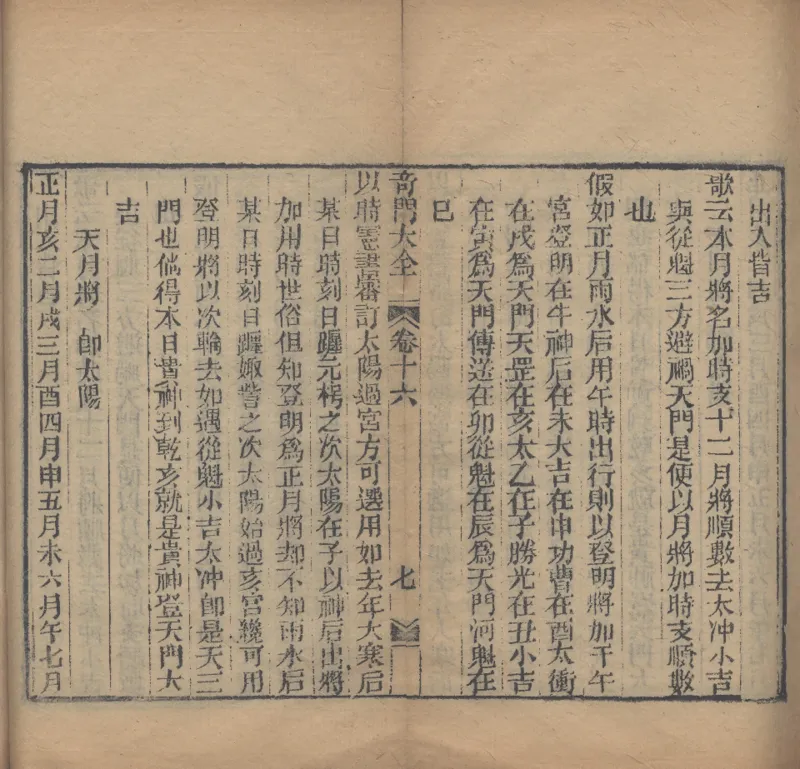 出入皆吉
歌云本月將名加時支十二月將順數去太冲小吉
與從魁三方避禍天門是便以月將加時支順數
也
假如正月雨水后用午時出行則以登明將加于午
宮登明在午神后在未大吉在申功曹在酉太衝
在戌為天門天罡在亥太乙在子勝光在丑小吉
在寅為天門傳送在卯從魁在辰為天門河魁在
巳
奇門大全 卷十六 七
以時憲書審訂太陽過宮方可選用如去年大寒后
某日時刻日躔元枵之次太陽在子以神后出將
加用時世俗但知登明為正月將却不知雨水后
某日時刻日躔娵訾之次太陽始過亥宮纔可用
登明將以次輪去如遇從魁小吉太冲即是天三
門也倘得本日貴神到乾亥就是貴神登天門大
吉
天月將 即太陽
正月亥二月戌三月酉四月申五月未六月午七月